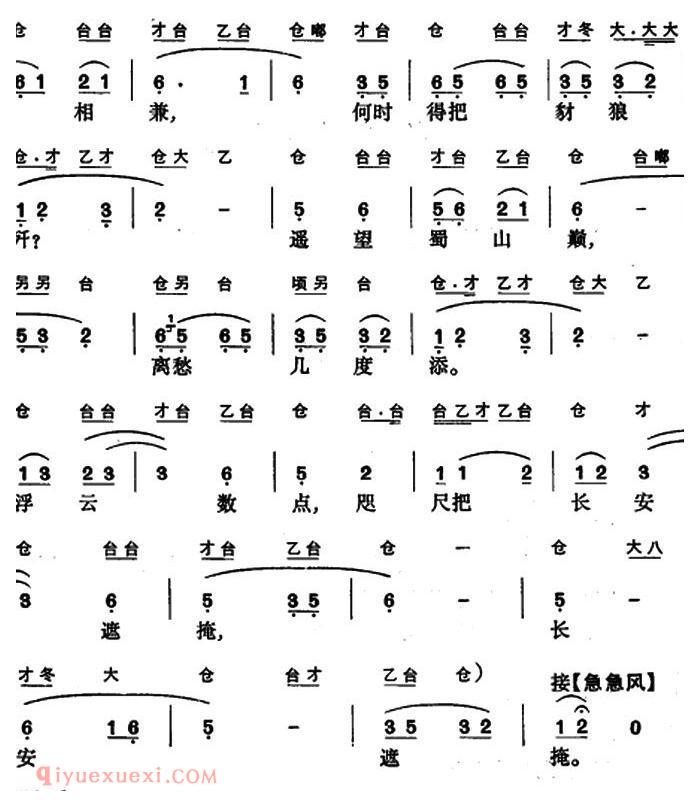 仓 台台 才台 乙台 仓嘟 才台 仓 台台 才冬 大.大大
61 21 | 6. 1 | 6 35 | 65 65 | 35 32
相 兼, 何时 得把 豺 狼
仓.才 乙才 仓大 乙 仓 台台 才台 乙台 仓 台嘟
12 3 | 2 - | 5 6 | 56 21 | 6 -
歼? 遥 望 蜀 山 巅,
另另 台 仓另 台 顷另 台 仓.才 乙才 仓大 乙
53 2 | 65 65 | 35 32 | 12 3 | 2 -
离愁 几 度 添。
仓 台台 才台 乙台 仓 台.台 台乙才乙台 仓 才
13 23 | 3 6 | 5 2 | 11 2 | 12 3
浮 云 数 点, 咫 尺把 长 安
仓 台台 才台 乙台 仓 一 仓 大八
3 6 | 5 35 | 6 - | 5 -
遮 掩, 长
才冬 大 仓 台才 乙台 仓) 接【急急风】
6 16 | 5 - | 35 32 | 12 0
安 遮 掩。
qiyuexuexi.com